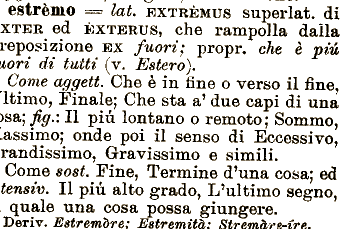 estrèmo = lat. EXTRÈMUS superlat. di
XTER ed ÈXTERUS, che rampolla dalla
reposizione EX fuori; propr. che è più
uori di tutti (v. Estero).
Come aggett. Che è in fine o verso il fine,
ltimo, Finale; Che sta a' due capi di una
osa; fig.: Il più lontano o remoto; Sommo,
assimo; onde poi il senso di Eccessivo,
randissimo, Gravissimo e simili.
Come sost. Fine, Termine d'una cosa; ed
tensiv. Il più alto grado, L'ultimo segno,
quale una cosa possa giungere.
Deriv. Estremòre; Estremità; Stremàre-íre.